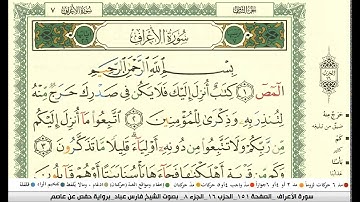 ٧ سورة الأعراف الجزء الثامن
سُورَةُ الأَعْرَافِ
بِسْمِ اللَّهِ الرَّحْمَٰنِ الرَّحِيمِ
الٓمٓصٓ ١ كِتَٰبٌ أُنزِلَ إِلَيْكَ فَلَا يَكُن فِى صَدْرِكَ حَرَجٌ مِّنْهُ
لِتُنذِرَ بِهِۦ وَذِكْرَىٰ لِلْمُؤْمِنِينَ ٢ ٱتَّبِعُوا۟ مَآ أُنزِلَ إِلَيْكُم
مِّن رَّبِّكُمْ وَلَا تَتَّبِعُوا۟ مِن دُونِهِۦٓ أَوْلِيَآءَ ۗ قَلِيلًا مَّا تَذَكَّرُونَ ٣
حرج منه
سورة الأعراف _الصفحة ١٥١_الحزب ١٦_الجزء ٨_ بصوت الشيخ فارس عباد_برواية حفص عن عاصم